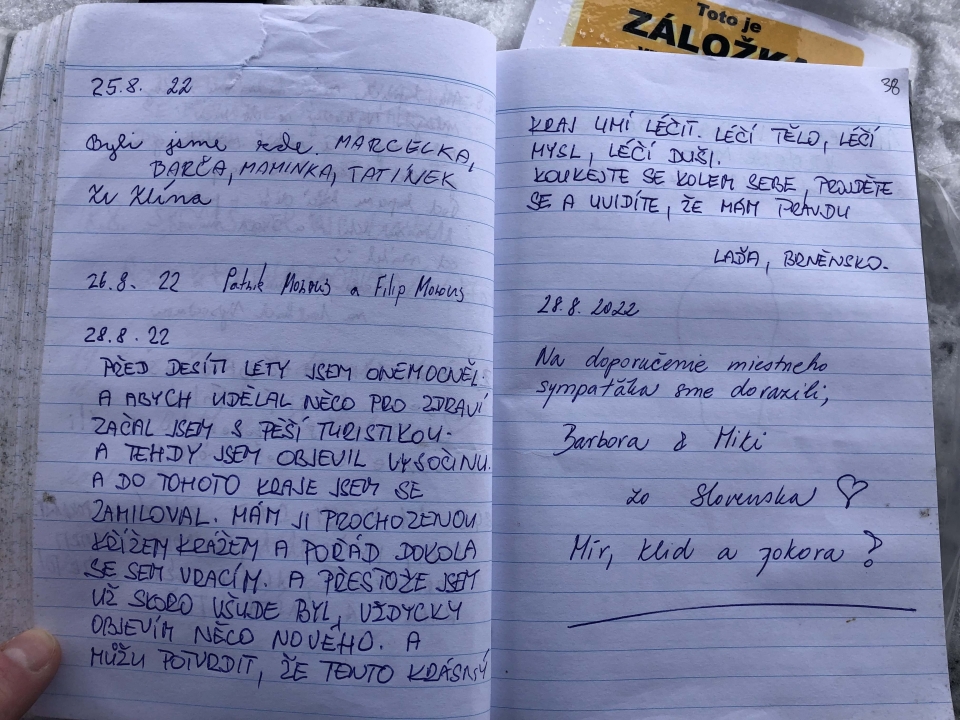 Toto je
ZÁLOŽK
25.8. 22
Byli jsme zde. MARCELKA,
BARČA, MAMINKA, TATÍNEK
Ze Zlína
26.8. 22 Patrik a Filip
28.8.22
PŘED DESÍTI LÉTY JSEM ONEMOCNĚL.
A ABYCH UDĚLAL NĚCO PRO ZDRAVÍ
ZAČAL JSEM S PĚŠÍ TURISTIKOU.
A TEHDY JSEM OBJEVIL VYSOČINU.
A DO TOHOTO KRAJE JSEM SE
ZAMILOVAL. MÁM JI PROCHOZENOU
KŘÍŽEM KRÁŽEM A POŘÁD DOKOLA
SE SEM VRACÍM. A PŘESTOŽE JSEM
UŽ SKORO VŠUDE BYL, VŽDYCKY
OBJEVÍM NĚCO NOVÉHO. A
MŮŽU POTVRDIT, ŽE TENTO KRÁSNÝ
38
KRAJ UMÍ LÉČIT. LÉČÍ TĚLO, LÉČÍ
MYSL, LÉČÍ DUŠI.
KOUKEJTE SE KOLEM SEBE, PROJDĚTE
SE A UVIDÍTE, ŽE MÁM PRAVDU
LAĎA, BRNĚNSKO.
28.8.2022
Na doporučenie miestneho
sympaťáka sme dorazili,
Barbora & Miki
zo Slovenska ♡
Mír, klid a pokora